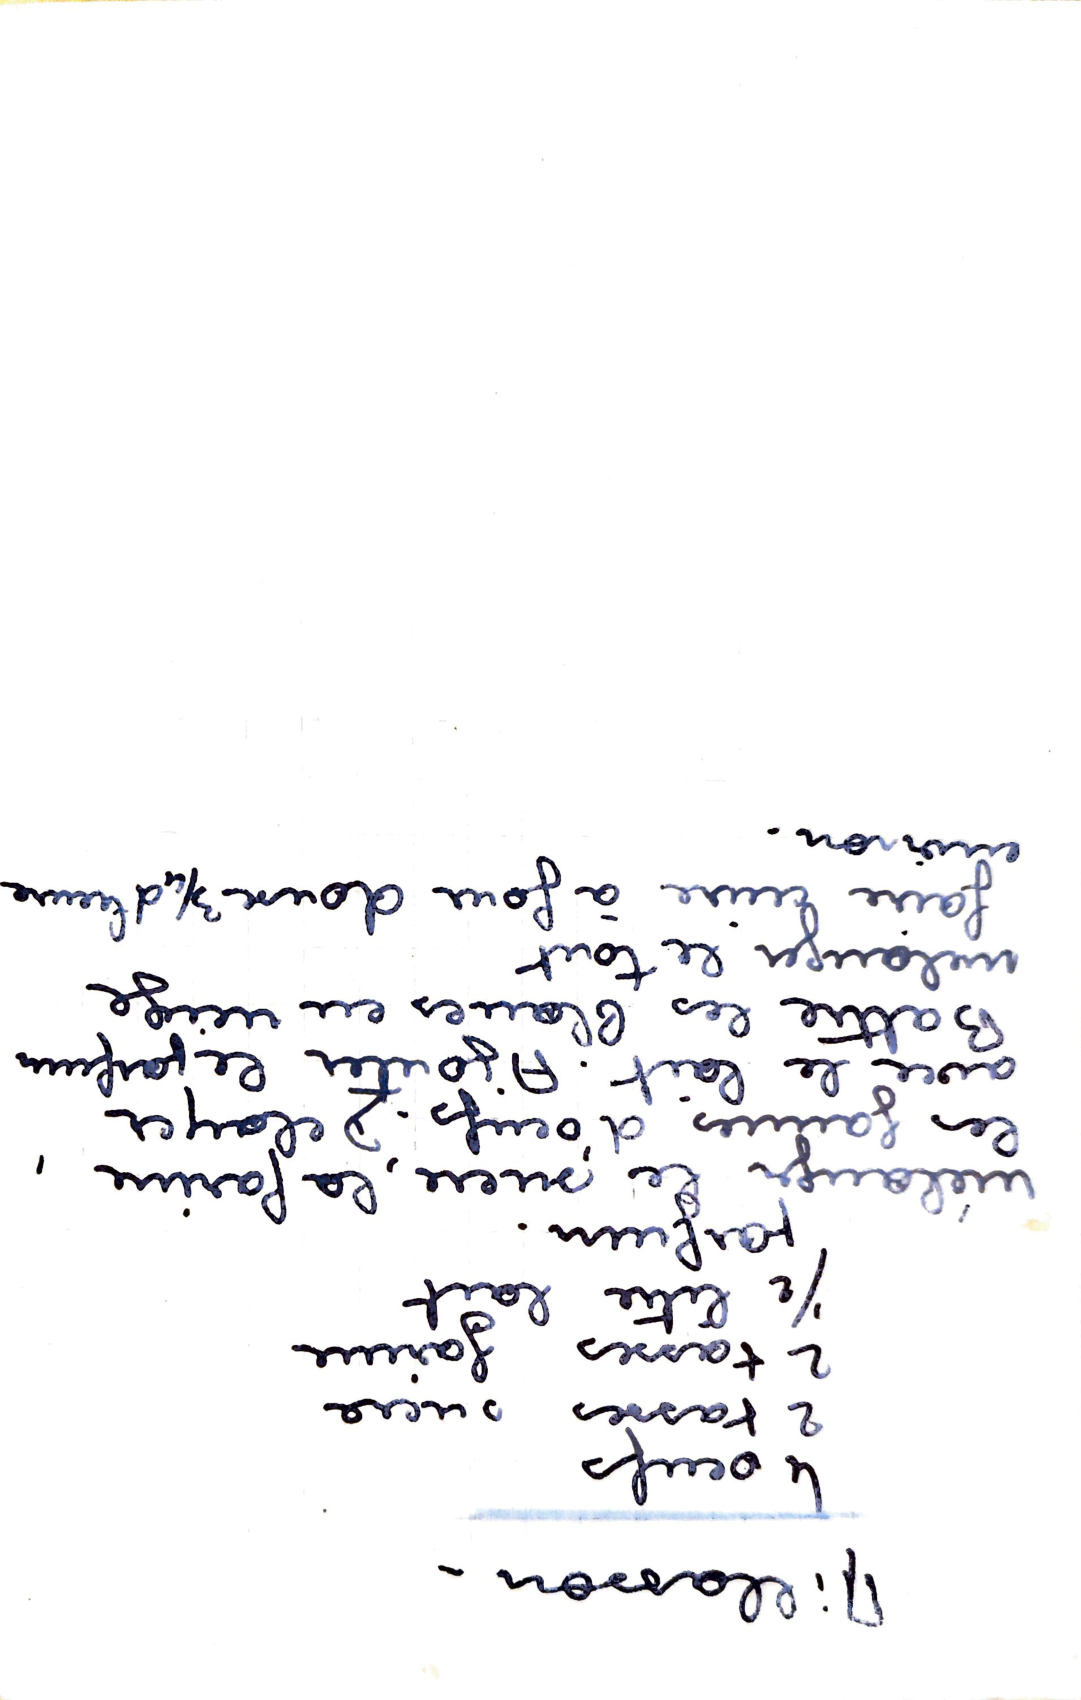 Millasson -
4 oeufs
2 tasses sucre
2 tasses farine
1/2 litre lait
parfum.
mélanger le sucre, la farine,
les jaunes d'oeufs. Delayer
avec le lait. Ajouter le parfum
Battre les blancs en neige
mélanger le tout
faire cuire à four doux 3/4 d'heure
environ.